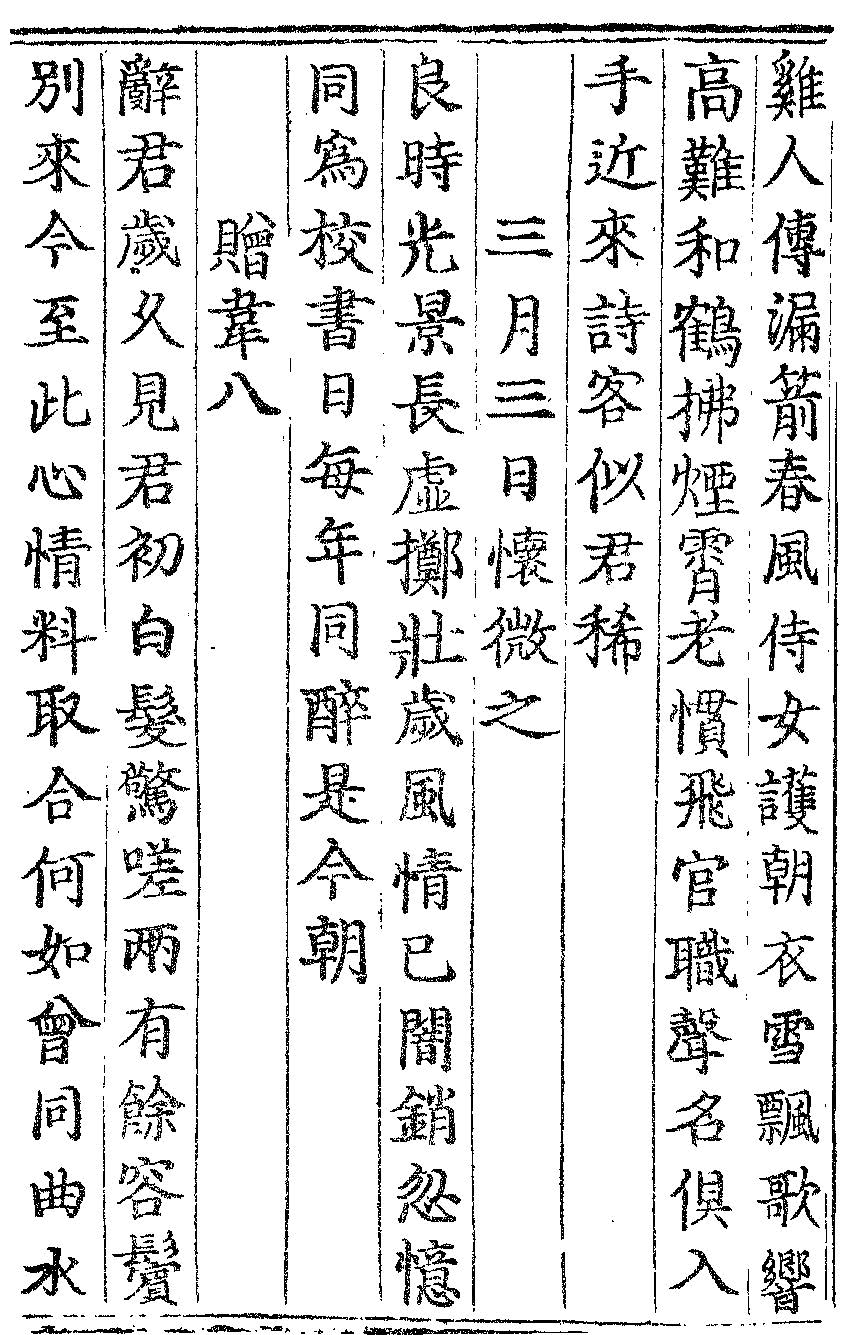 雞人傳漏箭春風侍女護朝衣雪飄歌響
高難和鶴拂煙霄老慣飛官職聲名俱入
手近來詩客似君稀
三月三日懷微之
良時光景長虛擲壯歲風情已闇銷忽憶
同爲校書日每年同醉是今朝
贈韋八
辭君歲久見君初白髮驚嗟兩有餘容鬢
別來今至此心情料取合何如曾同曲水